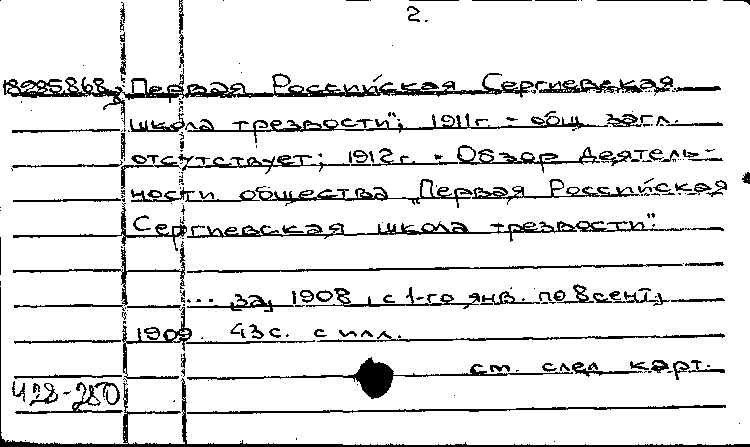 2.
Первая Российская Сергиевская
школа трезвости"; 1911г. - общ. загл.
отсутствует; 1912г. - Обзор деятель-
ности общества „Первая Российская
Сергиевская школа трезвости".
... [за] 1908 [с 1-го янв. по 8 сент.]
1909. 43с. с илл.
см. след. карт.
Ч28-280